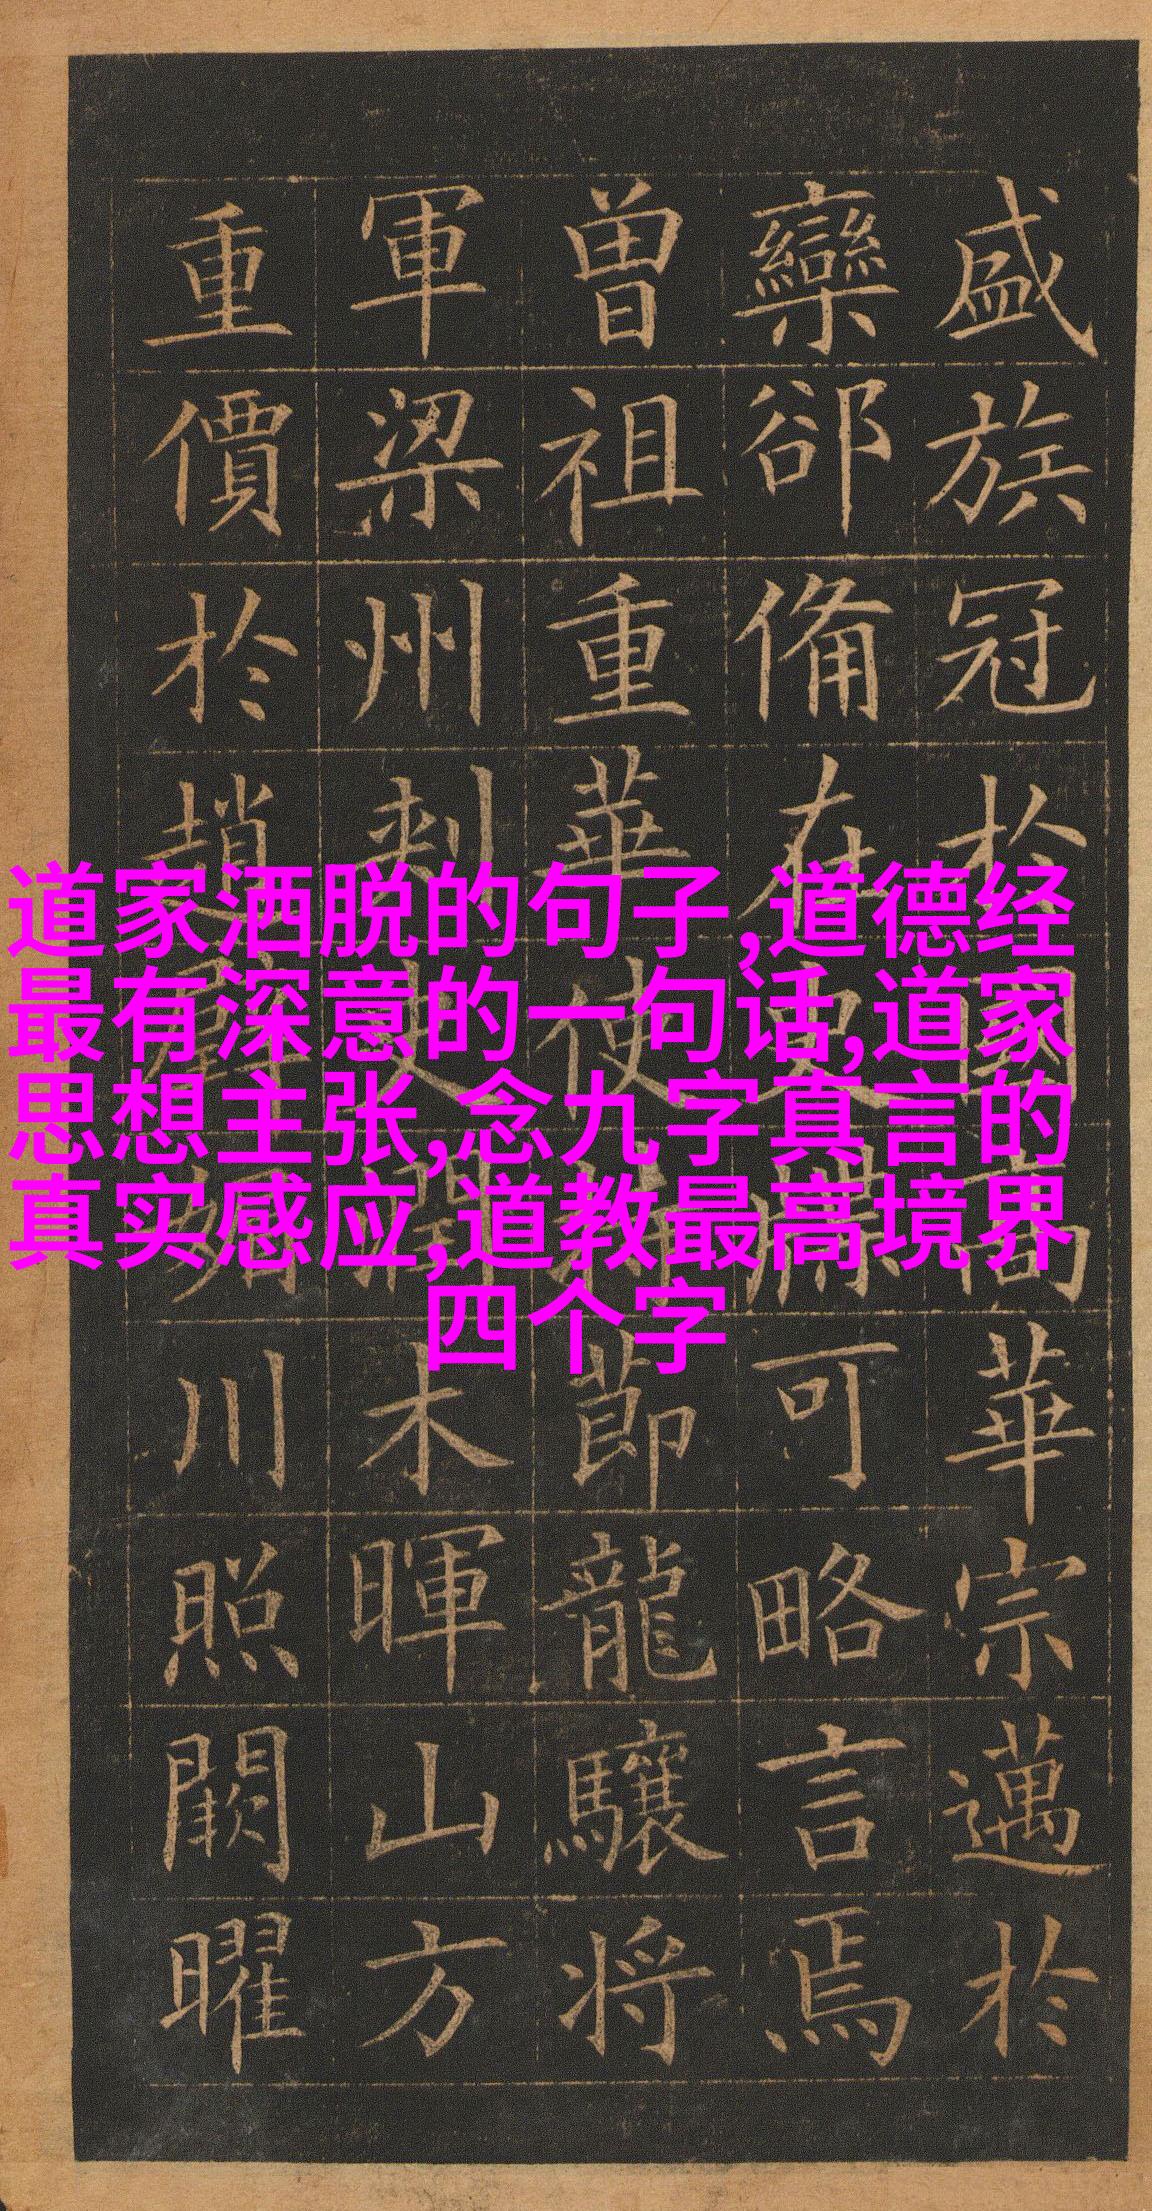 盛族冠於國高華宗邁於
欒郤俻在史牒可略言焉
曽祖重華使持節龍驤将
軍梁州刺史潤木暉山方
重價於趙璧媚川照闕曜
道家洒脱的句子,道德经
最有深意的一句话,道家
思想主张,念九字真言的
真实感应,道教最高境界
四个字